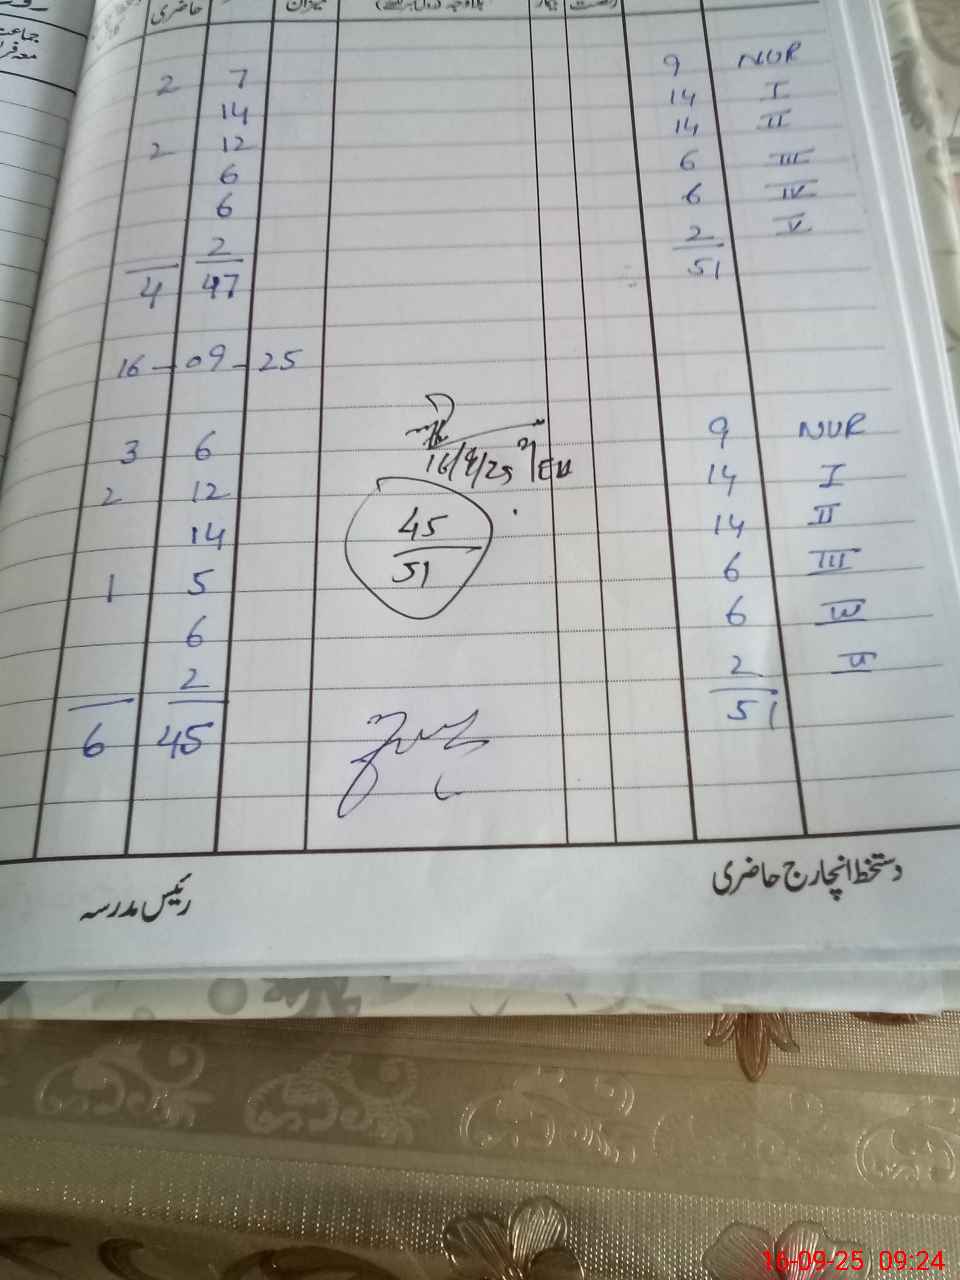 حاضری میزان بیمار رخصت
جماعت
NUR 9 7 2
I 14 14
II 14 12 2
III 6 6
IV 6 6
V 2 2
51 47 4
16-09-25
NUR 9 6 3
I 14 12 2
II 14 14
III 6 5 1
IV 6 6
V 2 2
51 45 6
16/9/25
45
51
دستخط انچارج حاضری
رئیس مدرسہ
16-09-25 09:24